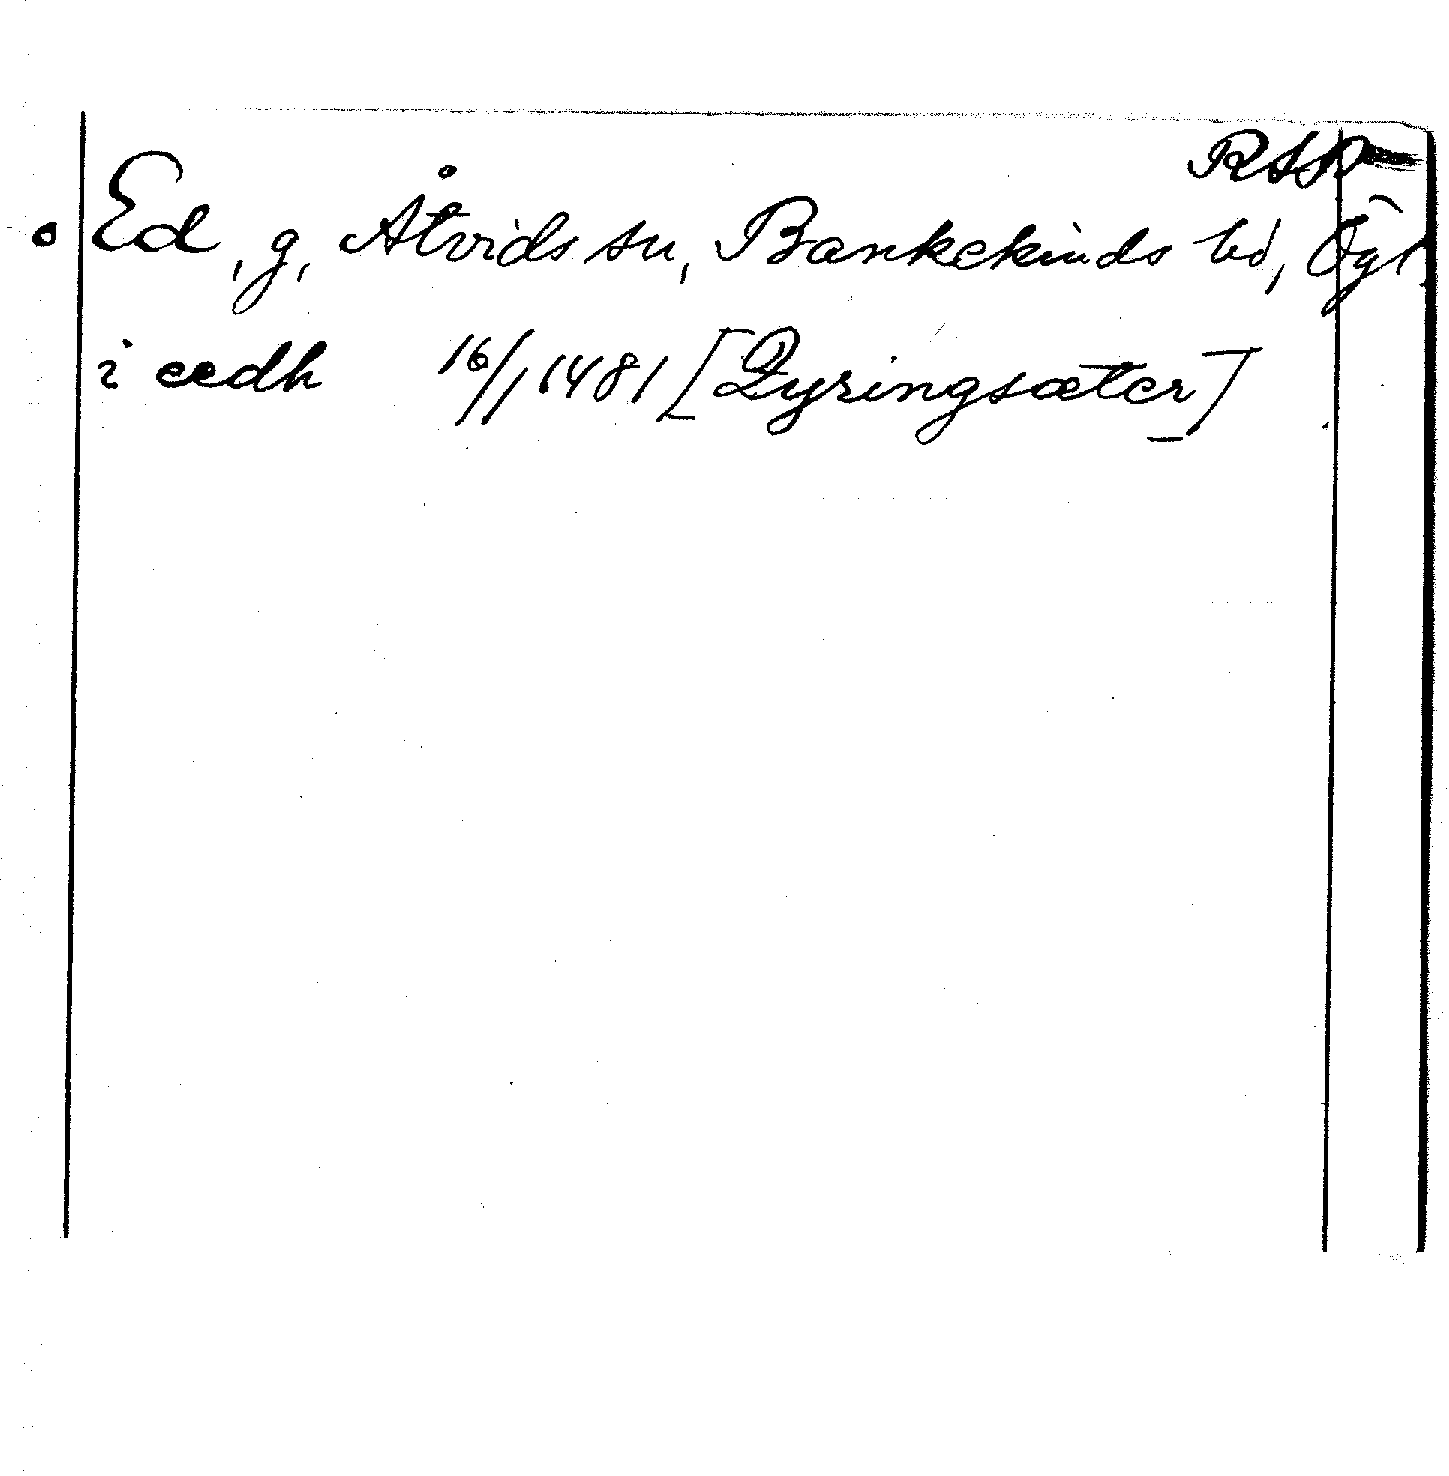 RAP
Ed, g, Åtvids sn, Bankekinds hd, Ögl.
i eedh 16/1 1481 [Dyringsæter]